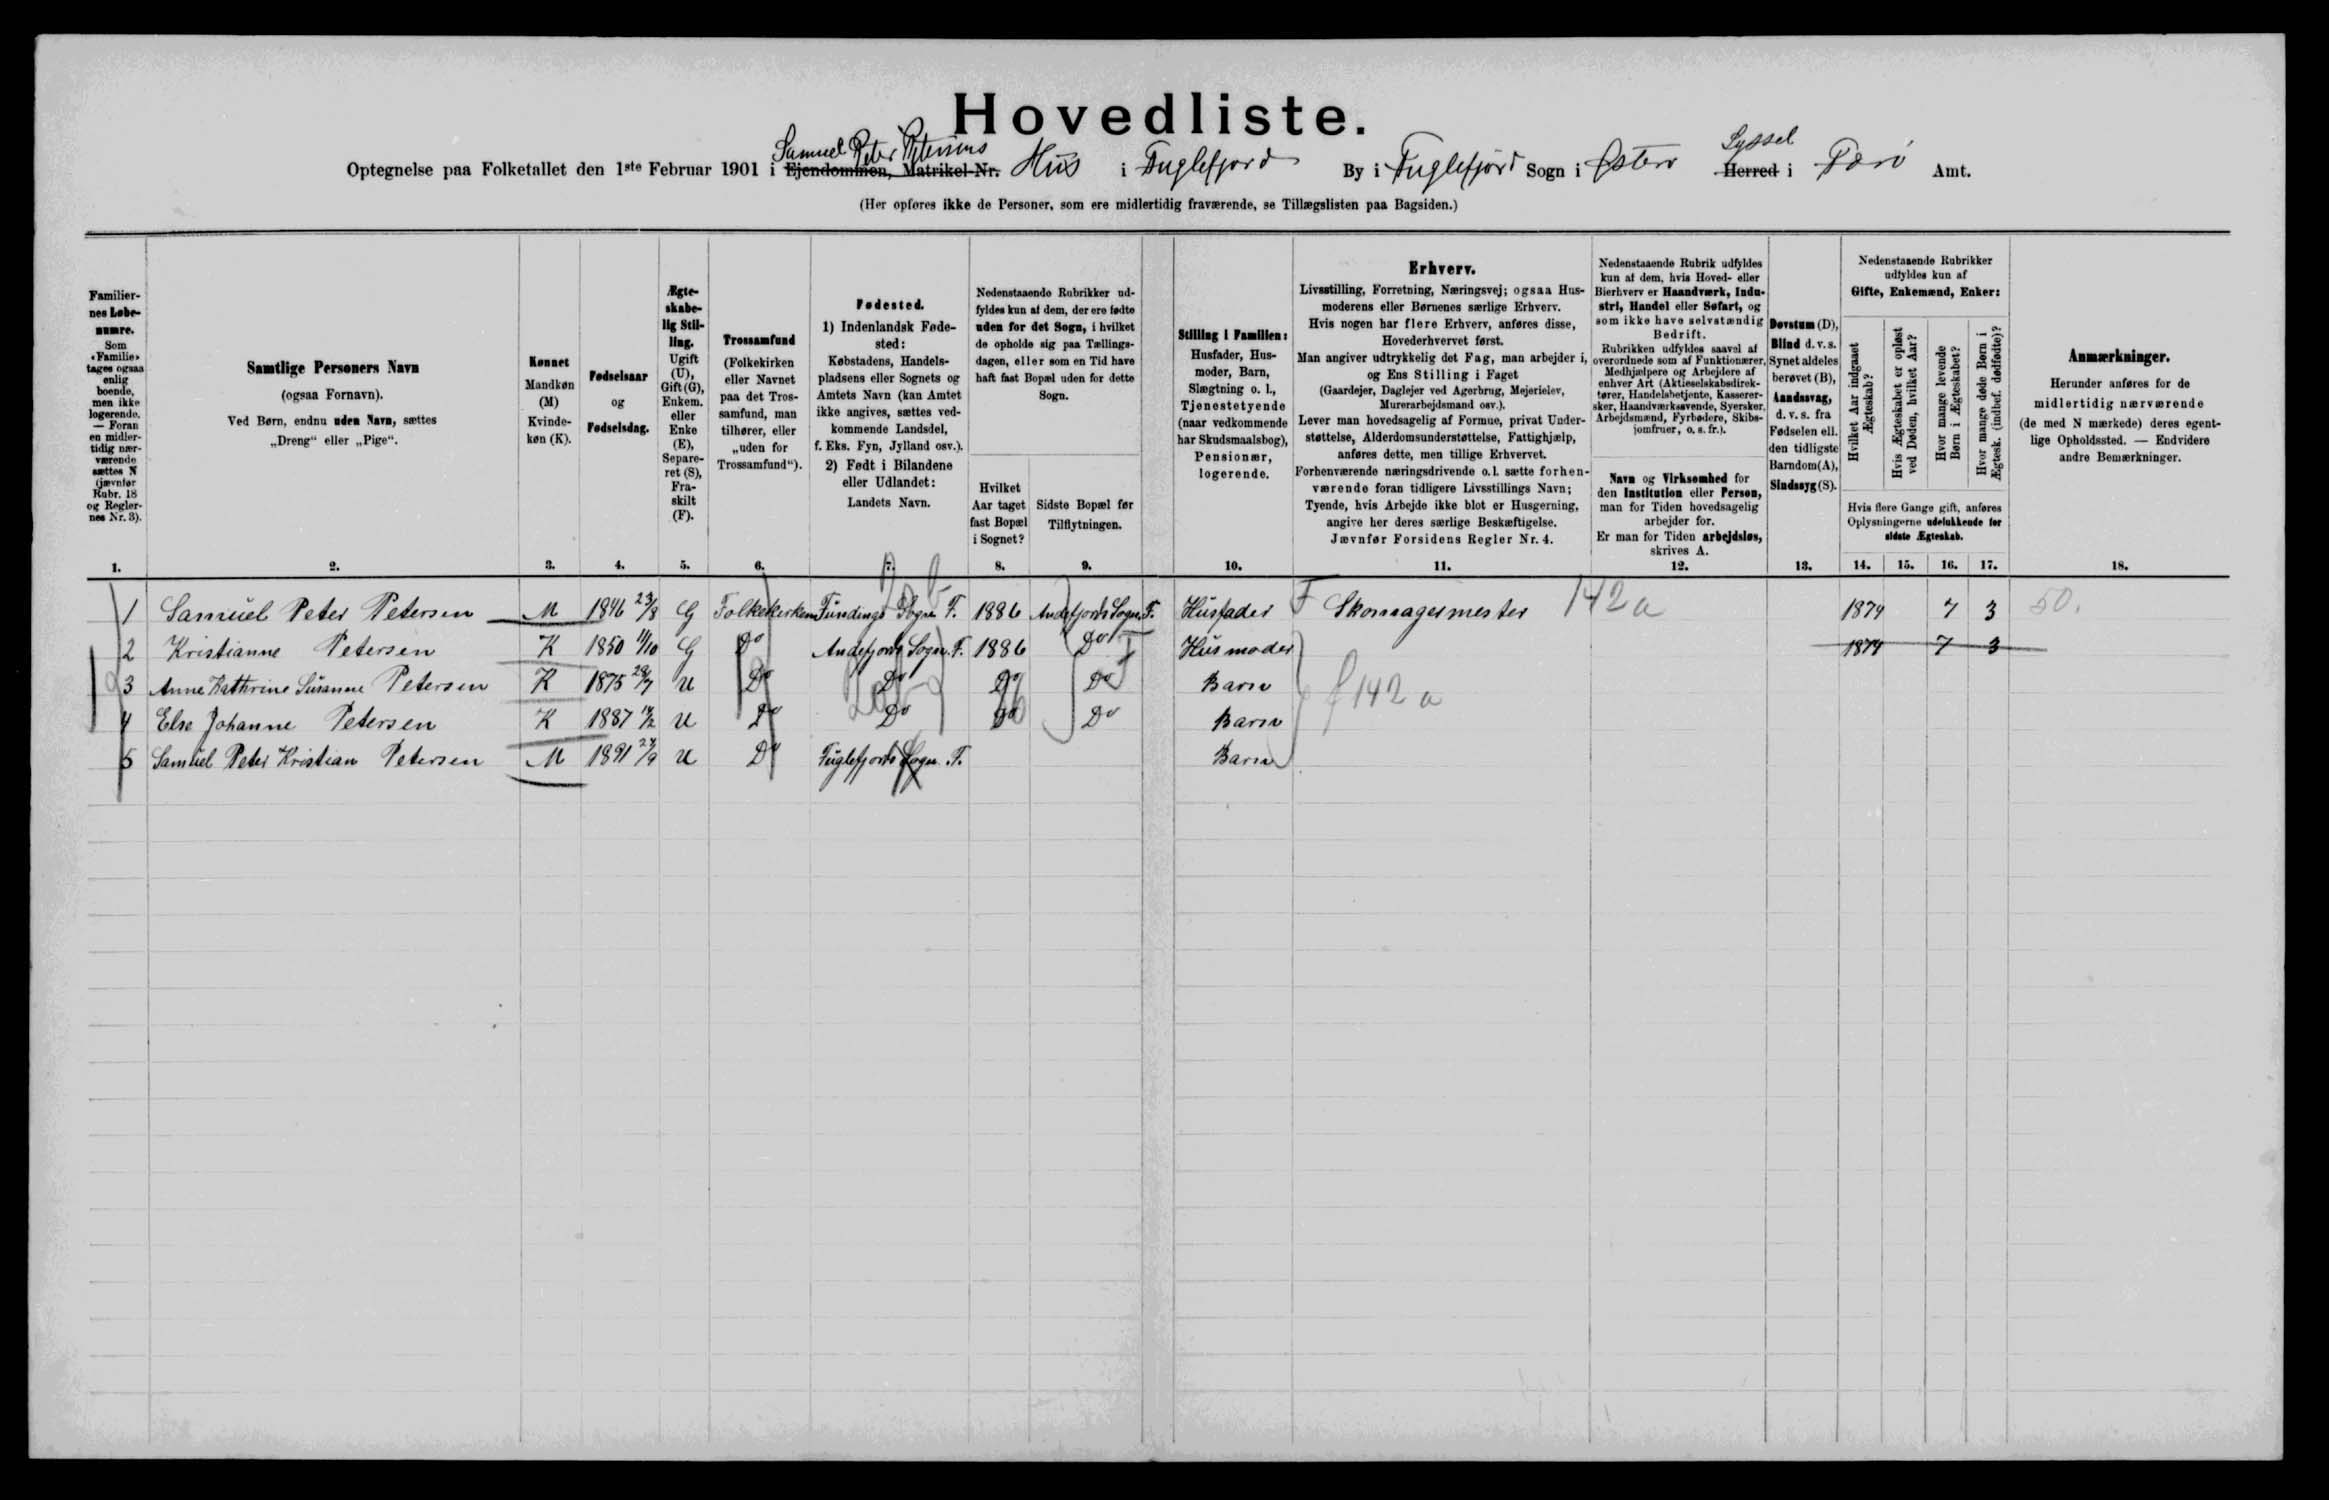 Hovedliste.
Samuel Peter Petersens
Syssel
Optegnelse paa Folketallet den 1ste Februar 1901 i Ejendommen, Matrikel-Nr. Hus i Fuglefjord By i Fuglefjord Sogn i Østerø Herred i Færø Amt.
(Her opføres ikke de Personer, som ere midlertidig fraværende, se Tillægslisten paa Bagsiden.)
Familier-
nes Løbe-
numre.
Som
«Familie»
tages ogsaa
enlig
boende,
men ikke
logerende.
— Foran
en midler-
tidig nær-
værende
sættes N
(jævnfør
Rubr. 18
og Regler-
nes Nr. 3).
1.
Samtlige Personers Navn
(ogsaa Fornavn).
Ved Børn, endnu uden Navn, sættes
„Dreng“ eller „Pige“.
2.
Kønnet
Mandkøn
(M)
Kvinde-
køn (K).
3.
Fødselsaar
og
Fødselsdag.
4.
Ægte-
skabe-
lig Stil-
ling.
Ugift
(U),
Gift (G),
Enkem.
eller
Enke
(E),
Separe-
ret (S),
Fra-
skilt
(F).
5.
Trossamfund
(Folkekirken
eller Navnet
paa det Tros-
samfund, man
tilhører, eller
„uden for
Trossamfund“).
6.
Fødested.
1) Indenlandsk Føde-
sted:
Købstadens, Handels-
pladsens eller Sognets og
Amtets Navn (kan Amtet
ikke angives, sættes ved-
kommende Landsdel,
f. Eks. Fyn, Jylland osv.).
2) Født i Bilandene
eller Udlandet:
Landets Navn.
7.
Nedenstaaende Rubrikker ud-
fyldes kun af dem, der ere fødte
uden for det Sogn, i hvilket
de opholde sig paa Tællings-
dagen, eller som en Tid have
haft fast Bopæl uden for dette
Sogn.
Hvilket
Aar taget
fast Bopæl
i Sognet?
8.
Sidste Bopæl før
Tilflytningen.
9.
Stilling i Familien:
Husfader, Hus-
moder, Barn,
Slægtning o. l.,
Tjenestetyende
(naar vedkommende
har Skudsmaalsbog),
Pensionær,
logerende.
10.
Erhverv.
Livsstilling, Forretning, Næringsvej; ogsaa Hus-
moderens eller Børnenes særlige Erhverv.
Hvis nogen har flere Erhverv, anføres disse,
Hovederhvervet først.
Man angiver udtrykkelig det Fag, man arbejder i,
og Ens Stilling i Faget
(Gaardejer, Daglejer ved Agerbrug, Mejerielev,
Murerarbejdsmand osv.).
Lever man hovedsagelig af Formue, privat Under-
støttelse, Alderdomsunderstøttelse, Fattighjælp,
anføres dette, men tillige Erhvervet.
Forhenværende næringsdrivende o. l. sætte forhen-
værende foran tidligere Livsstillings Navn;
Tyende, hvis Arbejde ikke blot er Husgerning,
angive her deres særlige Beskæftigelse.
Jævnfør Forsidens Regler Nr. 4.
11.
Nedenstaaende Rubrik udfyldes
kun af dem, hvis Hoved- eller
Bierhverv er Haandværk, Indu-
stri, Handel eller Søfart, og
som ikke have selvstændig
Bedrift.
Rubrikken udfyldes saavel af
overordnede som af Funktionærer,
Medhjælpere og Arbejdere af
enhver Art (Aktieselskabsdirek-
tører, Handelsbetjente, Kasserer-
sker, Haandværkssvende, Syersker,
Arbejdsmænd, Fyrbødere, Skibs-
jomfruer, o. s. fr.).
Navn og Virksomhed for
den Institution eller Person,
man for Tiden hovedsagelig
arbejder for.
Er man for Tiden arbejdsløs,
skrives A.
12.
Døvstum (D),
Blind d. v. s.
Synet aldeles
berøvet (B),
Aandssvag,
d. v. s. fra
Fødselen ell.
den tidligste
Barndom (A),
Sindssyg (S).
13.
Nedenstaaende Rubrikker
udfyldes kun af
Gifte, Enkemænd, Enker:
Hvilket Aar indgaaet
Ægteskab?
Hvis Ægteskabet er opløst
ved Døden, hvilket Aar?
Hvor mange levende
Børn i Ægteskabet?
Hvor mange døde Børn i
Ægtesk. (indbef. dødfødte)?
Hvis flere Gange gift, anføres
Oplysningerne udelukkende for
sidste Ægteskab.
14. 15. 16. 17.
Anmærkninger.
Herunder anføres for de
midlertidig nærværende
(de med N mærkede) deres egent-
lige Opholdssted. — Endvidere
andre Bemærkninger.
18.
1 Samuel Peter Petersen M 1846 23/8 G Folkekirken Fundings Sogn F. 1886 Andefjords Sogn F. Husfader F Skomagermester 142a 1874 7 3 50.
2 Kristianne Petersen K 1850 11/10 G Do Andefjords Sogn. F. 1886 Do Husmoder 1874 7 3
3 Anne Kathrine Susanne Petersen K 1875 29/7 U Do Do Do Do Barn f 142 a
4 Else Johanne Petersen K 1887 14/2 U Do Do Do Do Barn
5 Samuel Peter Kristian Petersen M 1891 24/9 U Do Fuglefjords Sogn. F. Barn